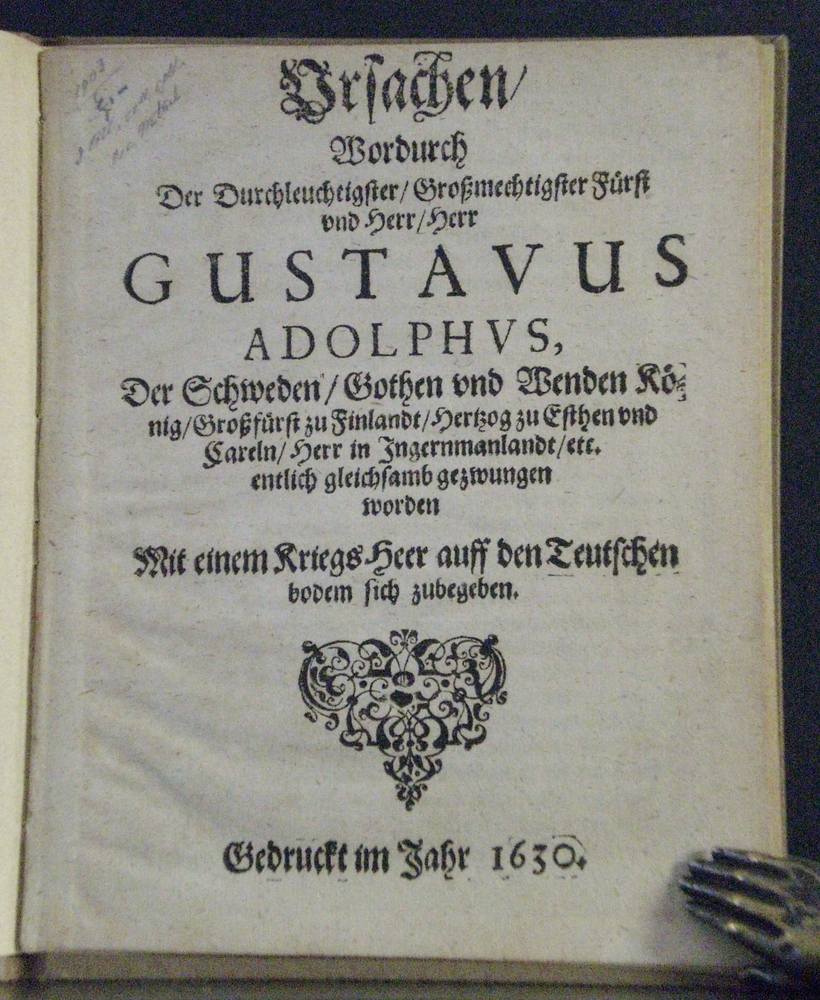 1903
Vrsachen/
Wordurch
Der Durchleuchtigster/ Großmechtigster Fürst
vnd Herr/ Herr
GUSTAVUS
ADOLPHVS,
Der Schweden/ Gothen vnd Wenden Kö⸗
nig/ Großfürst zu Finlandt/ Hertzog zu Esthen vnd
Careln/ Herr in Ingernmanlandt/ etc.
entlich gleichsamb gezwungen
worden
Mit einem Kriegs-Heer auff den Teutschen
bodem sich zubegeben.
Gedruckt im Jahr 1630.